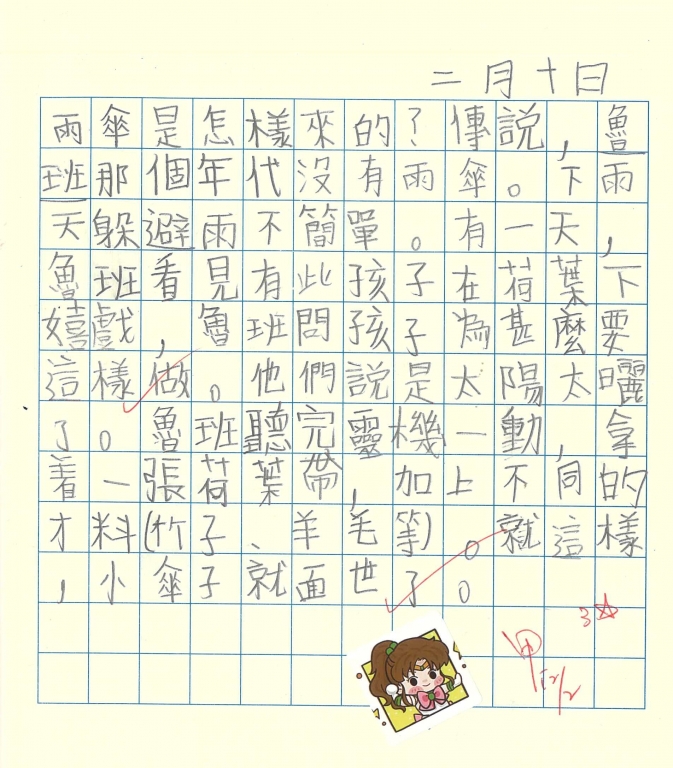 二月十日
雨傘是怎樣來的？傳說，魯
班那個年代沒有雨傘。下雨
天躲避雨不簡單。有一天，
魯班看見有些孩子在荷葉下
嬉戲，魯班問孩子為甚麼要
這樣做。他們說是太陽太曬
了。魯班聽完靈機一動，拿
着一張荷葉帶，加上不同的
才料(竹子、羊毛等)。就這樣
，小傘子就面世了。
3☆
甲
12/2